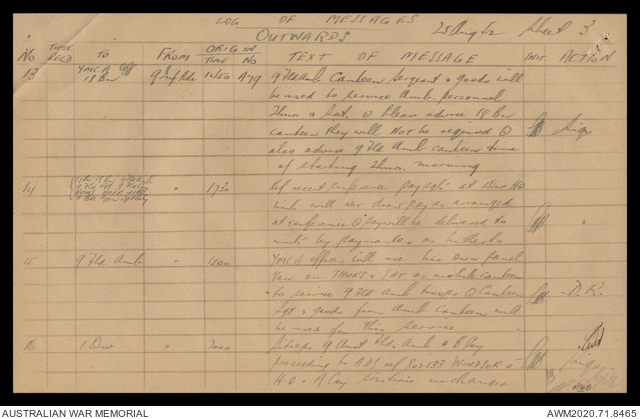 LOG OF MESSAGES
OUTWARDS 25 Aug 42 Sheet 3
No TIME RECD TO FROM ORIGIN TIME NO TEXT OF MESSAGE INIT ACTION
13 YMCA Off 18 Bn 9 Inf Bde 1450 A79 9 Fd Amb Canteen Sergeant & goods will
be used to service Amb. personnel
Thur & Sat. O Please advise 18 Bn
canteen they will NOT be required O Sigs
also advise 9 Fd Amb canteen time
of starting Thur. morning
14 " 1730 Ref recent conference paybooks at 1 Div HQ
units will NOT draw pay as arranged
at conference O pay will be delivered to "
units by paymaster as hitherto
15 9 Fld Amb " 1500 YMCA officer will use his own panel
van on THURS & SAT as mobile canteen
to service 9 Fd Amb troops O Canteen D.R.
Sgt & goods from Amb Canteen will
be used for this service
16 1 Div " 2000 9 Aust Fld. Amb & B Coy
proceeding to ADS ref 802133 WINDSOR O
HQ & A Coy locations unchanged
AUSTRALIAN WAR MEMORIAL AWM2020.71.8465